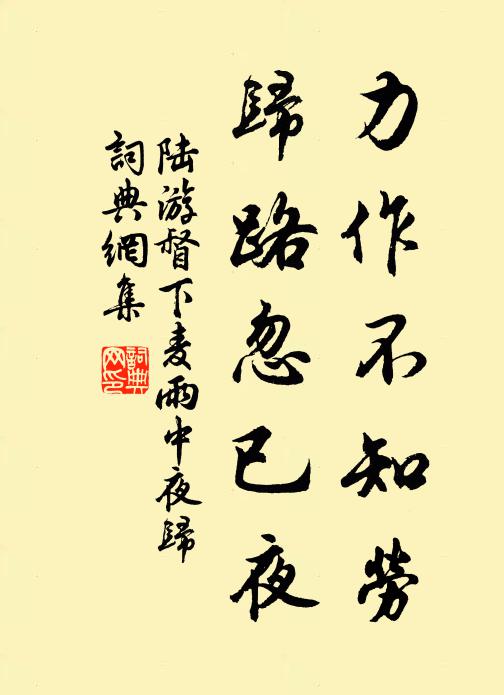 力作不知勞
歸路忽已夜
陆游督下麦雨中夜歸
詞典網集
詞典网印